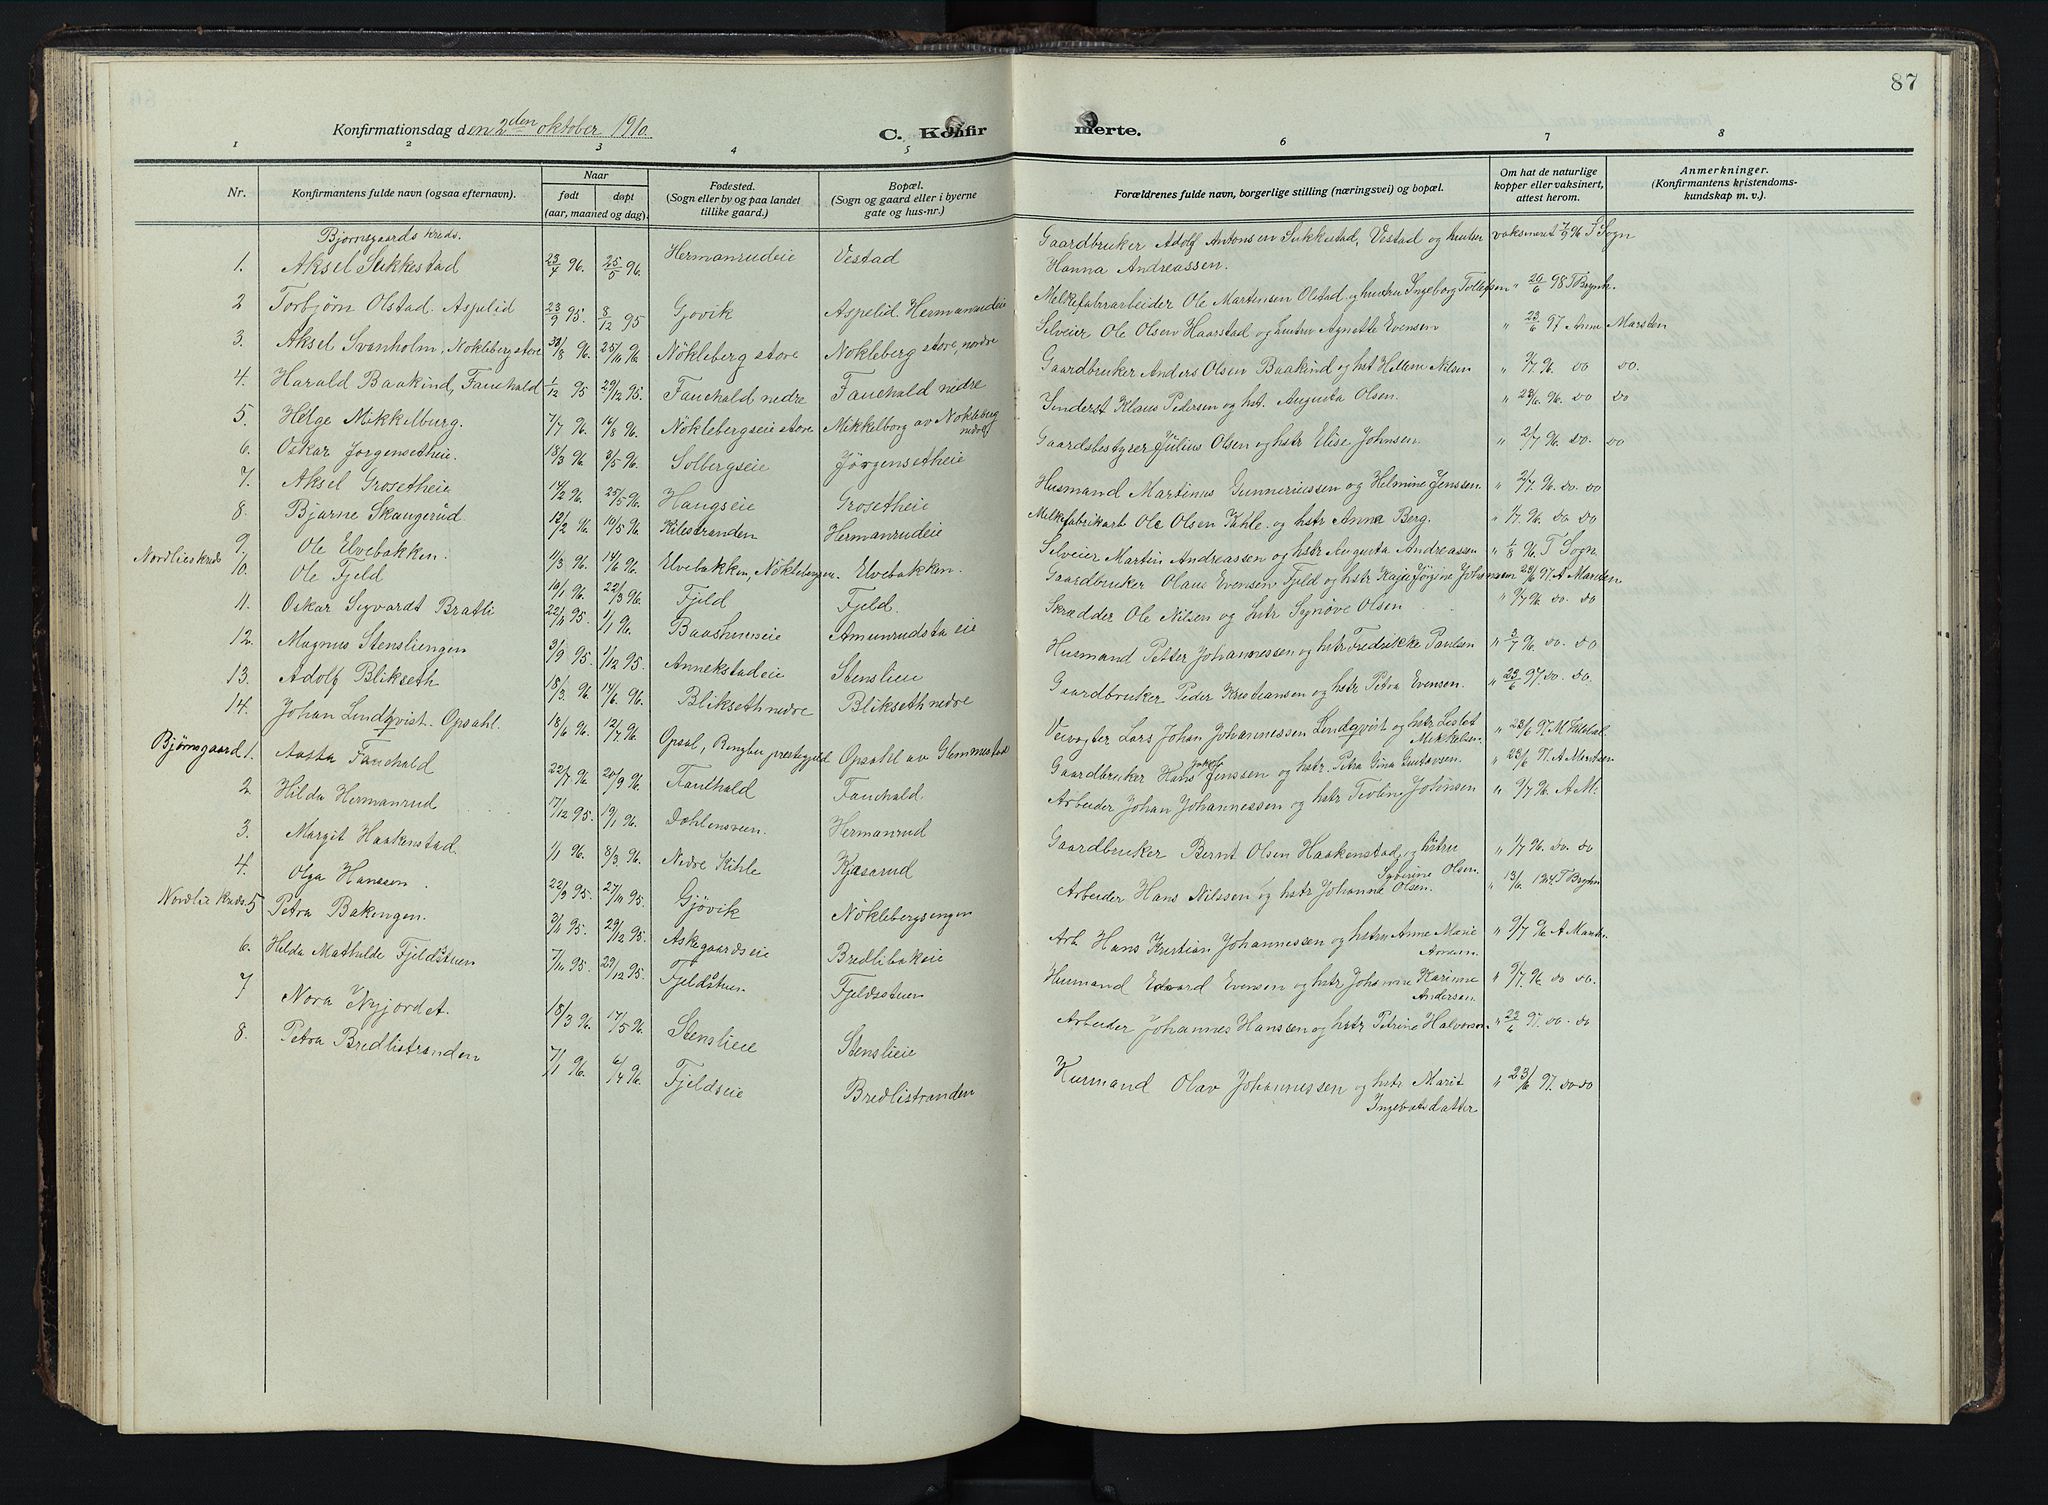 87
Konfirmationsdag den 2den oktober 1910.
C. Konfirmerte.
1 2 3 4 5 6 7 8
Nr.
Konfirmantens fulde navn (ogsaa efternavn).
Naar
født døpt
(aar, maaned og dag).
Fødested.
(Sogn eller by og paa landet
tillike gaard.)
Bopæl.
(Sogn og gaard eller i byerne
gate og hus-nr.)
Forældrenes fulde navn, borgerlige stilling (næringsvei) og bopæl.
Om hat de naturlige
kopper eller vaksinert,
attest herom.
Anmerkninger.
(Konfirmantens kristendoms-
kundskap m. v.).
Bjørnsgaards Kreds.
1. Aksel Sukkestad 23/4 96. 25/5 96. Hermanrudeie Vestad Gaardbruker Adolf Antonsen Sukkestad, Vestad og hustru vaksineret 7/9 96 T Sogn
Hanna Andreassen.
2 Torbjørn Olstad. Aspelid 23/9 95. 8/12 95 Gjøvik Aspelid Hermanrudeie Melkefabrarbeider Ole Martinsen Olstad og hustru Ingeborg Tollefsen " 20/6 98 T Brynh.
3. Aksel Svanholm, Nøkleberg store 30/8 96. 25/10 96. Nökleberg store Nökleberg store, nordre Selveier Ole Olsen Haarstad og hustru Agnette Evensen " 23/6 97 Anne Marsten
4. Harald Baakind, Fauchald 1/12 95 29/12 95. Fauchald nedre Fauchald nedre Gaardbruker Anders Olsen Baakind og hst Hellene Nilsen " 9/7 96. do do.
5. Helge Mikkelburg. 7/7 96 16/8 96. Nöklebergseie store Mikkelborg av Nökleberg nedre Inderst Klaus Pedersen og hst. Augusta Olsen. " 23/6 96. do do
6. Oskar Jørgensetheie. 18/3 96. 3/5 96. Solbergseie Jörgensetheie Gaardsbestyrer Julius Olsen og hstr Elise Johnsen " 2/7 96 do. do
7. Aksel Grosetheie 14/2 96. 25/5 96. Haugseie Grosetheie Husmand Martinus Gunneriussen og Helmine Jenssen. " 2/7 96. do. do
8 Bjarne Skaugerud 12/2 96. 19/5 96. Kilestranden Hermanrudeie Melkefabrikarb Ole Olsen Kihle. og hstr Anna Berg. " 1/7 96. do do
9. Ole Elvebakken. 11/3 96. 14/6 96. Elvebakken, Nökleberg Elvebakken. Selveier Martin Andreassen og hstr Augusta Andreassen " 1/8 96. T Sogn.
Nordlieskreds 10. Ole Fjeld 19/1 96. 22/3 96. Fjeld Fjeld. Gaardbruker Olaus Evensen Fjeld og hstr Kaja Jøgine Johansen 23/6 97. A Marsten
11. Oskar Sigvardt Bratli 22/11 95. 1/1 96. Baashuseie Amunrudstaeie Skrædder Ole Nilsen og hstr Synöve Olsen " 9/7 96. do. do
12. Magnus Stensliengen 3/9 95. 1/12 95. Annekstadeie Stenslieie Husmand Petter Johannessen og hstr Fredrikke Paulsen " 3/7 96. do. do
13. Adolf Blikseth 18/3 96. 14/6 96. Blikseth nedre Blikseth nedre Gaardbruker Peder Kristiansen og hstr Petra Evensen. " 23/6 97. do. do.
14. Johan Lindqvist. Opsahl. 18/6 96. 12/7 96. Opsal, Ringbu prestegjeld Opsahl av Glemmestad Veivogter Lars Johan Johannessen Lindqvist og hstr Leslet Mikkelsen. " 23/6 97.
Bjørnsgaard 1. Aasta Fauchald 22/7 96 20/9 96. Fauchald Fauchald Gaardbruker Hans Jakob Jenssen og hstr. Petra Gina Gustavsen. " 23/6 97. A Martsen
2. Hilda Hermanrud 17/12 95. 19/1 96. Dæhlensveen. Hermanrud Arbeider Johan Johannessen og hstr Teoline Johnsen " 9/7 96. A M:
3. Margit Haakenstad. 1/1 96. 8/3 96. Nedre Kihle Kjæsarud Gaardbruker Bernt Olsen Haakenstad og hstru Syverine Olsen. " 1/7 96. do. do
4. Olga Hanssen. 22/9 95. 27/10 95. Gjövik Nöklebergsengen Arbeider Hans Nilssen og hstr Johanna Olsen. " 13/6 T Bryhn
Nordlie kreds. 5 Petra Bakengen. 3/11 95. 29/12 95. Askegaardseie Bredlibakeie Arb. Hans Kristian Johannessen og hstr Anne Marie Arnesen. " 9/7 96 A Marts.
6. Helda Mathilde Fjeldstuen 7/10 95. 29/12 95. Fjeldstuen Fjeldsstuen Husmand Edvard Evensen og hstr Johanne Karinne Andersen. " 9/7. 96. do do.
7 Nora Nyjordet. 18/3 96. 17/5 96. Stenslieie Stenslieie Arbeider Johannes Hanssen og hstr Petrine Halvorsen. " 23/6 97. do. do
8. Petra Bredlistranden 7/1 96. 6/4 96. Fjeldseie Bredlistranden Husmand Olav Johannessen og hstr Marit Ingebretsdatter " 23/6 97. do do